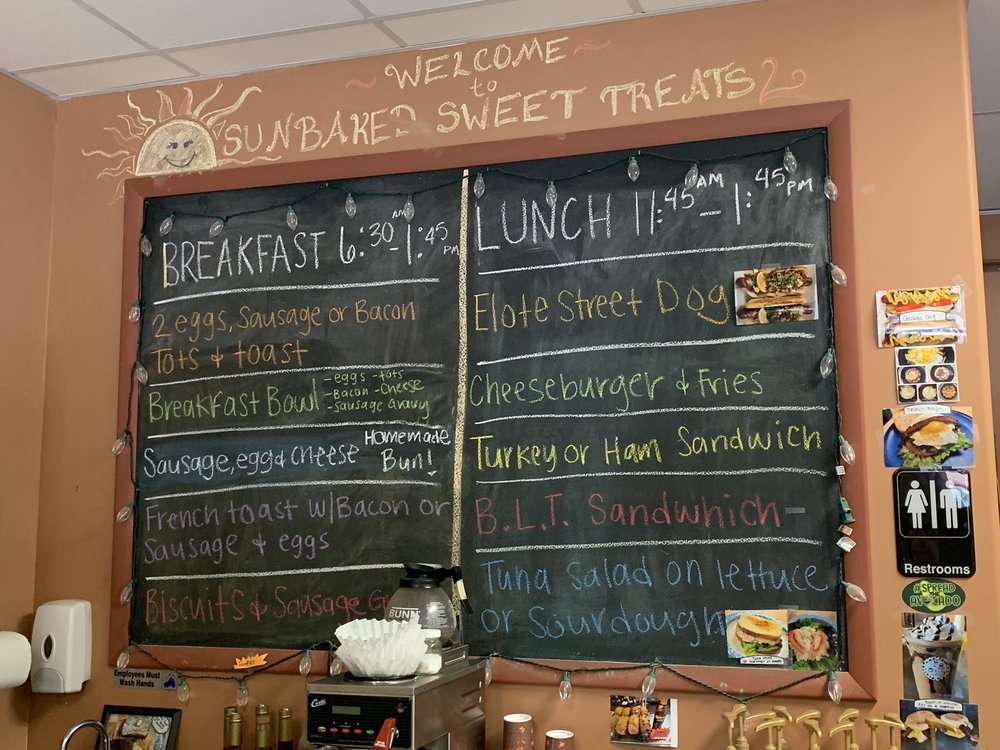 WELCOME
to
SUNBAKED SWEET TREATS
BREAKFAST 6:30AM-1:45PM
2 eggs, Sausage or Bacon
Tots & toast
Breakfast Bowl
-eggs -tots
-Bacon -Cheese
-Sausage Gravy
Sausage, egg & cheese
Homemade
Bun!
French toast w/Bacon or
Sausage & eggs
Biscuits & Sausage
LUNCH 11:45AM-1:45PM
Elote Street Dog
Cheeseburger & Fries
Turkey or Ham Sandwich
B.L.T. Sandwhich
Tuna Salad on lettuce
or Sourdough
Chicago Dog
Restrooms
#SPREAD
AVOCADO
BUNN
Employees Must
Wash Hands
Curtis